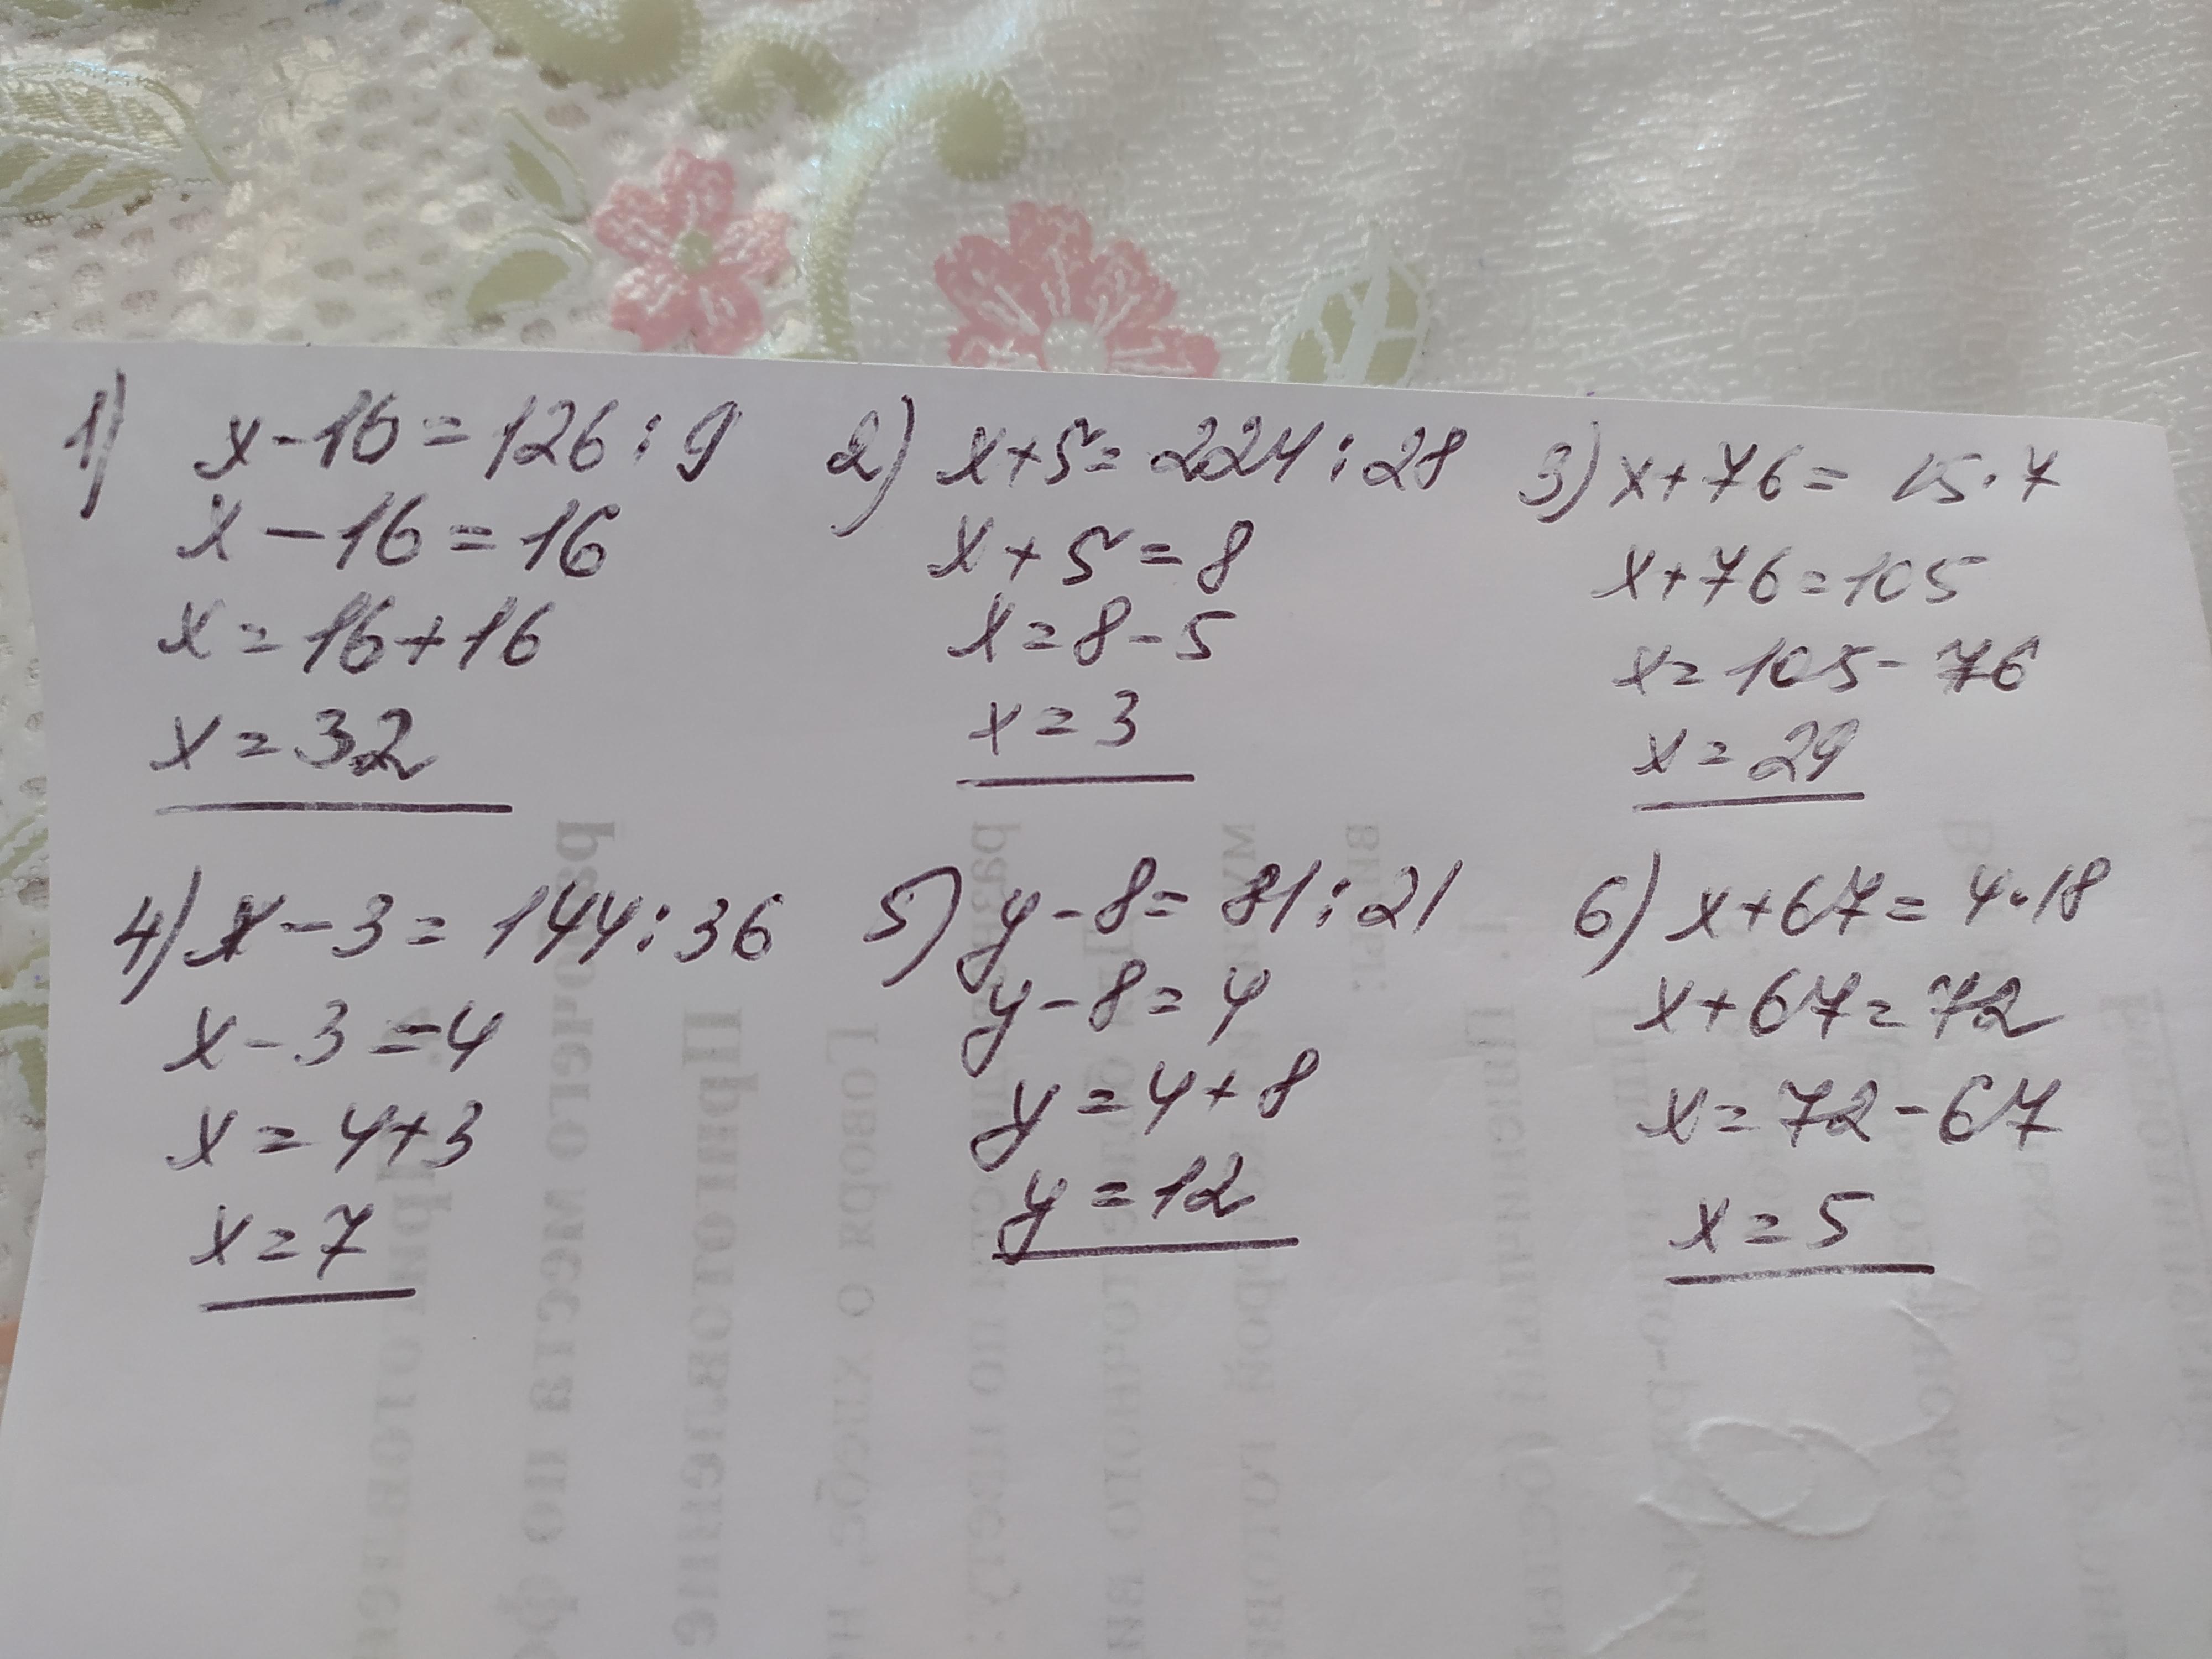 1) x-16=126:9
x-16=16
x=16+16
x=32
2) x+5=224:28
x+5=8
x=8-5
x=3
3) x+76=15·7
x+76=105
x=105-76
x=29
4) x-3=144:36
x-3=4
x=4+3
x=7
5) y-8=81:21
y-8=4
y=4+8
y=12
6) x+67=4·18
x+67=72
x=72-67
x=5